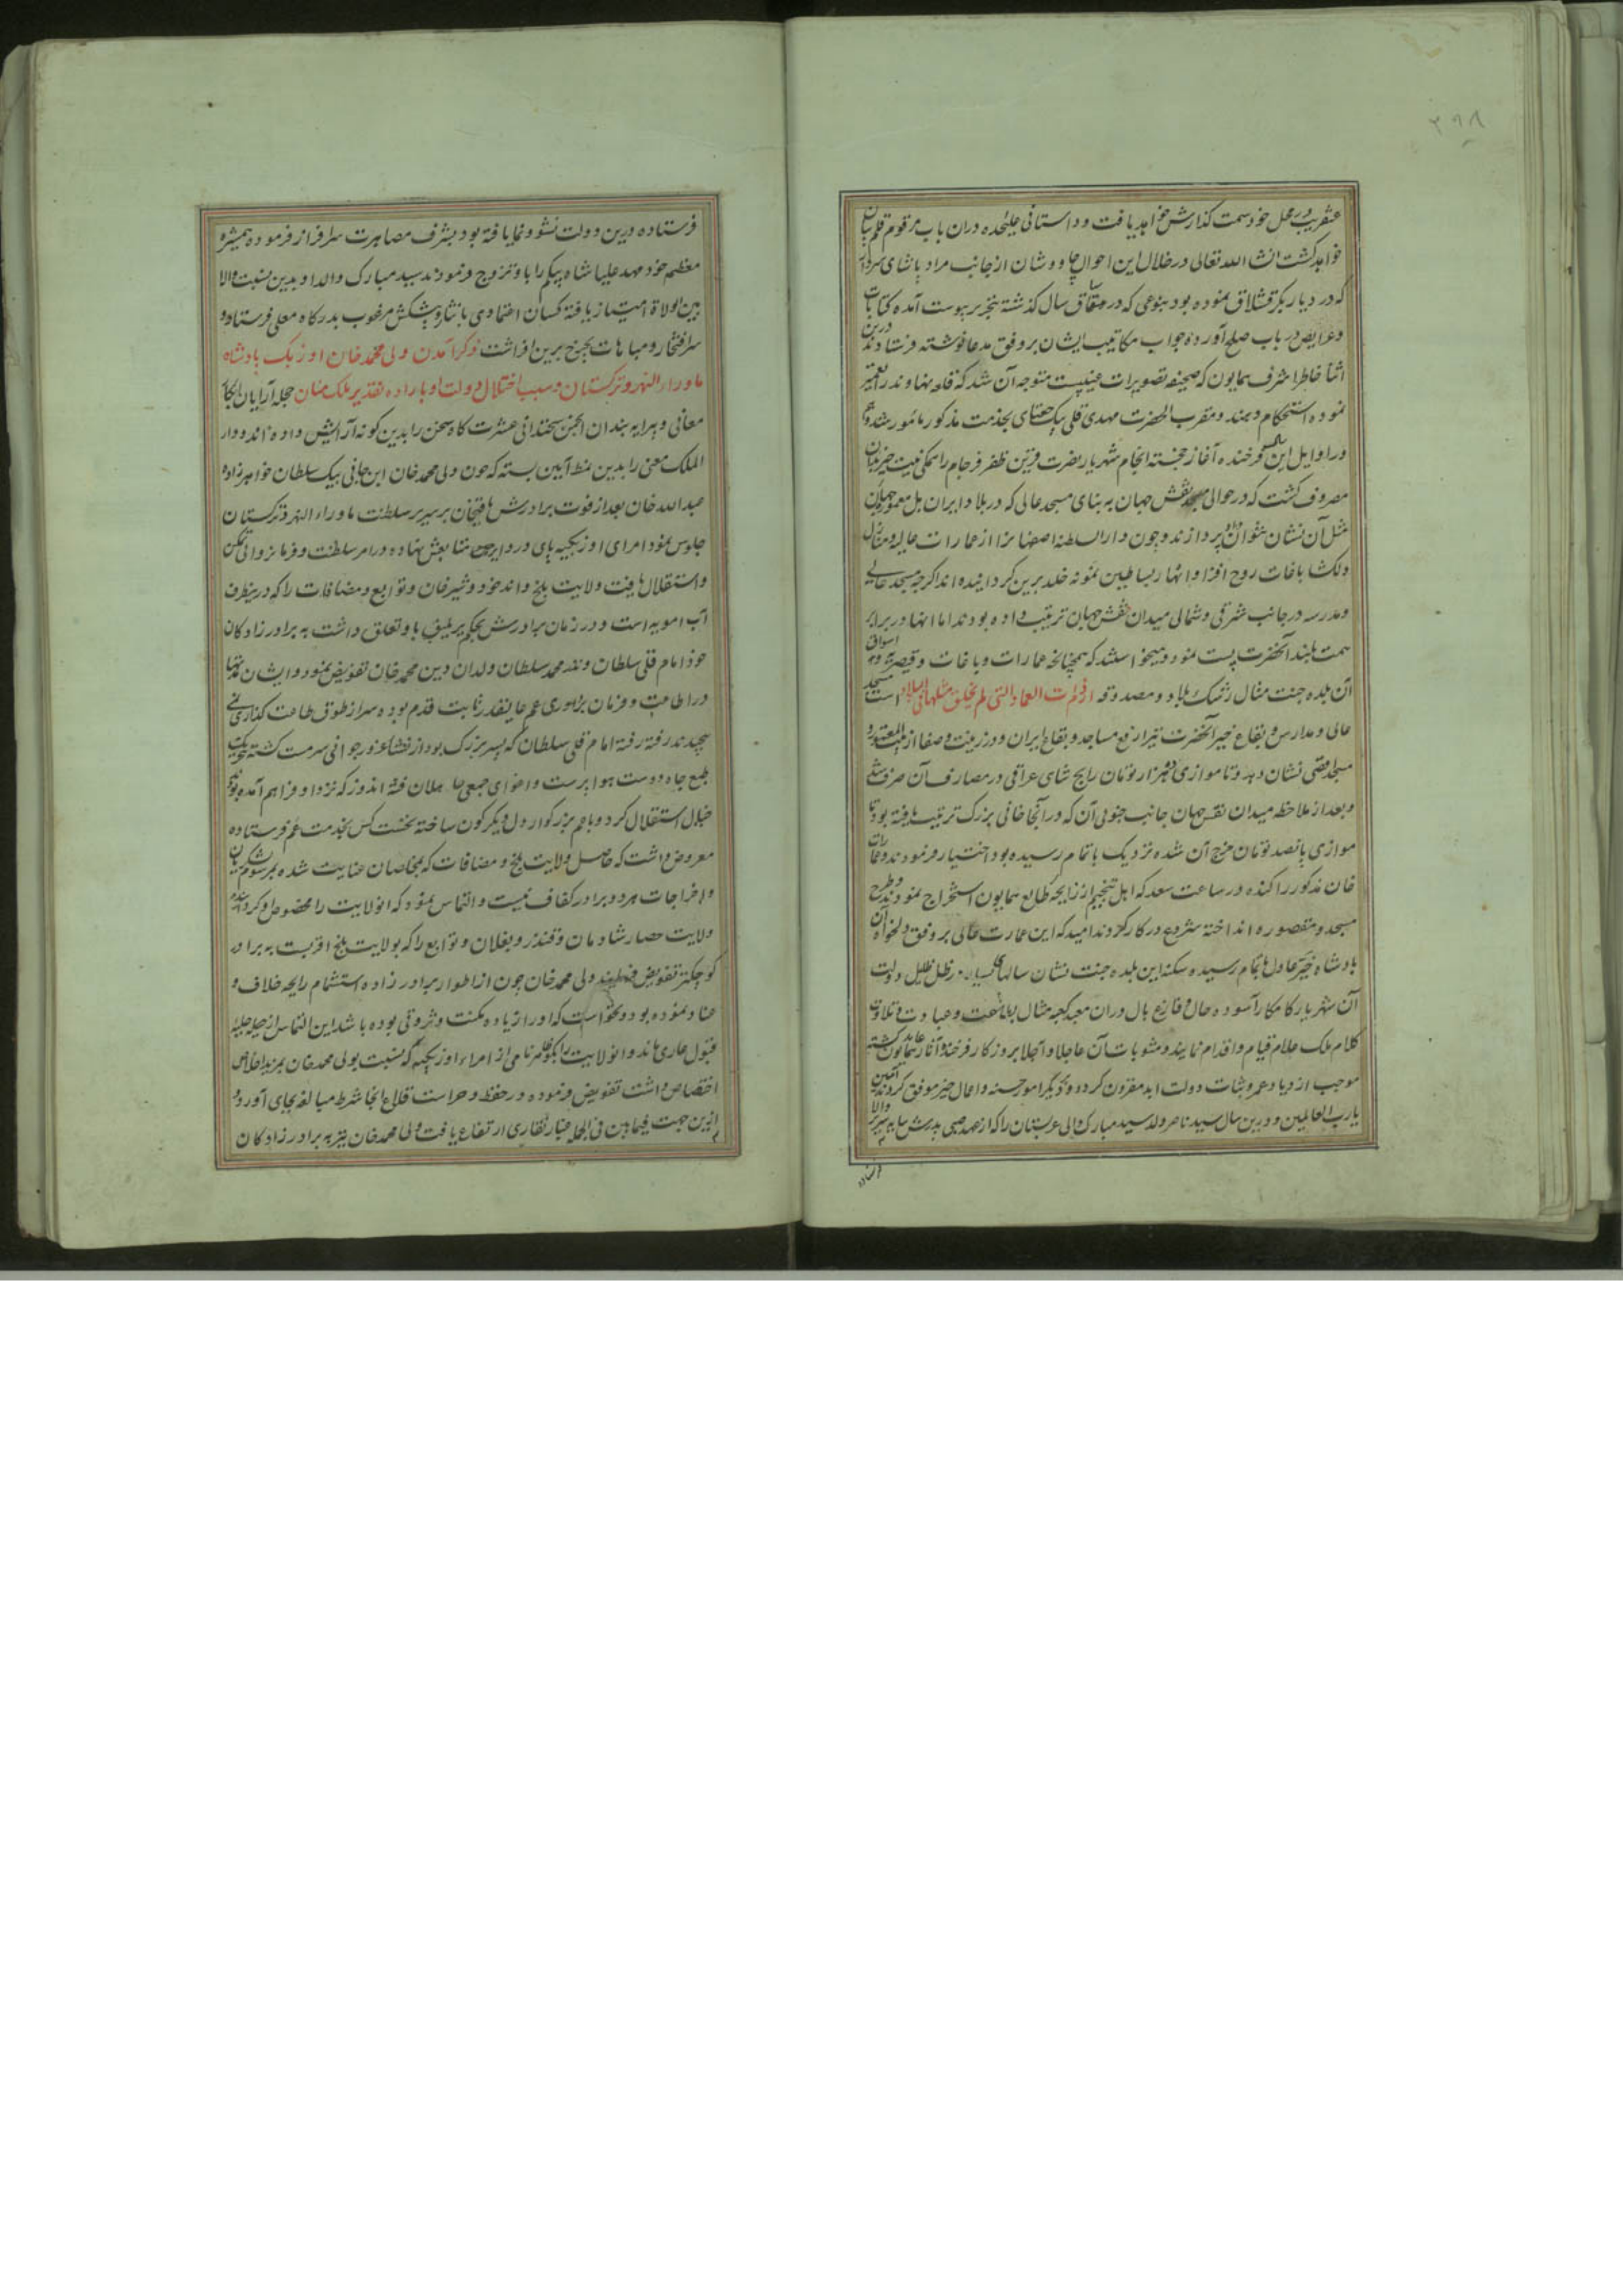 ۲۹۸
عنقریب در محل خود سمت گذارش خواهد یافت و داستانی علیحده دران باب مرقوم قلم بیان
خواهد گشت انشاء الله تعالی در خلال این احوال چاووشان از جانب مراد پاشای سردار
که در دیار بکر قشلاق نموده بود بنوعی که در سال گذشته تحریر پیوست آمده کتابات
و عرایض در باب صلح آورده جواب مکاتیب ایشان بر وفق مدعا نوشته فرستادند درین
اثنا خاطر اشرف همایون که صحیفه تصویرات غیبیست متوجه آن شد که قلعه نهاوند را تعمیر
نموده استحکام دهند و مقرب الحضرت مهدی قلی بیک جغتای بخدمت مذکور مأمور شد و
در اوایل این سال فرخنده آغاز خجسته انجام شهریار نصرت قرین ظفر فرجام را همگی نیت خیر بنیان
مصروف گشت که در حوالی نقش جهان به بنای مسجد عالی که در بلاد ایران بل معموره جهان
مثل آن نشان نتوان داد پردازند و چون دار السلطنه اصفهانرا از عمارات عالیه و منازل
دلکشا باغات روح افزا و انهار بساطین نمونه خلد برین گردانیده اند اگرچه مسجد عالی
و مدرسه در جانب شرقی و شمالی میدان نقش جهان ترتیب داده بودند اما انها در برابر
همت بلند آنحضرت پست نمود و میخواستند که همچنانچه عمارات و باغات و قیصریه و اسواق
آن بلده جنت مثال رشک بلاد و مصدوقه ارم ذات العماد التی لم یخلق مثلها فی البلاد است مسجد
عالی و مدارس و بقاع خیر آنحضرت نیز ارفع مساجد و بقاع ایران و در زینت و صفا از بیت المعمور و
مسجد اقصی نشان دهد و تا موازی ده هزار تومان رایج شاهی عراقی در مصارف آن صرف شد
و بعد از ملاحظه میدان نقش جهان جانب جنوبی آن که در آنجا خانی بزرگ ترتیب یافته بود تا
موازی پانصد تومان خرج آن شده نزدیک باتمام رسیده بود اختیار فرمودند و عمارات
خان مذکور را کنده در ساعت سعد که اهل تنجیم از زایچه طالع همایون استخراج نمودند و طرح
مسجد و مقصوره انداخته شروع در کار کردند امید که این عمارت عالی بر وفق دلخواه آن
پادشاه خیر عادل باتمام رسیده سکنه این بلده جنت نشان سالهای بسیار در ظل ظلیل دولت
آن شهریار کامکار آسوده حال و فارغ بال دران معبد کعبه مثال بطاعت و عبادت و تلاوت
کلام ملک علام قیام و اقدام نمایند و مثوبات آن عاجلا و آجلا بروزگار فرخنده آثار همایون عاید گشته
موجب ازدیاد عمر و ثبات دولت ابد مقرون گردد و دیگر امور حسنه و اعمال خیر موفق گردند آمین
یارب العالمین و درین سال سید ناصر ولد سید مبارک والی عربستان را که از عهد صبی پدرش بپایه سریر والا
فرستاده
فرستاده درین دولت نشو و نما یافته بود بشرف مصاهرت سرافراز فرموده همشیره
معظم خود مهد علیا شاه بیگم را با و تزویج فرمودند سید مبارک والد او بدین نسبت والا
بین الولاة امتیاز یافته کسان اعتمادی با نثار و پیشکش مرغوب بدرگاه معلی فرستاده
سر افتخار و مباهات بچرخ برین افراشت ذکر آمدن ولی محمد خان اوزبک پادشاه
ماوراء النهر و ترکستان و سبب اختلال دولت او باراده تقدیر ملک منان حجله آرایان ابکار
معانی و پیرایه بندان انجمن سخندانی عشرت گاه سخن را بدین گونه آرایش داده اند و دار
الملک معنی را بدین نمط آیین بسته که چون ولی محمد خان ابن جانی بیک سلطان خواهرزاده
عبد الله خان بعد از فوت برادرش باقیخان بر سریر سلطنت ماوراء النهر و ترکستان
جلوس نمود امرای اوزبکیه پای در دایره متابعتش نهاده در امر سلطنت و فرمانروائی تمکن
و استقلال یافت ولایت بلخ و اندخود و شبرغان و توابع و مضافات را که درینطرف
آب امویه است و در زمان برادرش بحکم یرلیغ باو تعلق داشت به برادرزادگان
خود امام قلی سلطان و ندر محمد سلطان ولدان دین محمد خان تفویض نمود و ایشان مدتها
در اطاعت و فرمان برداری عم عالیقدر ثابت قدم بوده سر از طوق طاعت گذاری نمی
پیچیدند رفته رفته امام قلی سلطان که پسر بزرگ بود از نشاء غرور جوانی سرمست گشته بتحریک
طبع جاه دوست هوا پرست و اغوای جمعی جاهلان فتنه اندوز که نزد او فراهم آمده بودند
خیال استقلال کرد و با عم بزرگوار دل دیگرگون ساخته نخست کس بخدمت عم فرستاده
معروض داشت که حاصل ولایت بلخ و مضافات که بمخلصان عنایت شده بمرسوم لشکریان
و اخراجات هر دو برادر کفاف نیست و التماس نمود که انولایت را مخصوص او گردانیده
ولایت حصار شادمان و قندز و بغلان و توابع را که بولایت بلخ اقربست به برادر
کوچکتر تفویض فرمایند ولی محمد خان چون از اطوار برادرزاده استشمام رایحه خلاف و
عناد نموده بود و نخواست که او را زیاده مکنت و ثروتی بوده باشد این التماس از حیله
قبول عاری ماند و انولایت را نامی از امراء اوزبکیه که نسبت بولی محمد خان بمزید اخلاص
اختصاص داشت تفویض فرموده در حفظ و حراست قلاع انجا شرط مبالغه بجای آورد و
ازین جهت فیمابین فی الجمله غبار نقاری ارتفاع یافت ولی محمد خان نیز به برادرزادگان